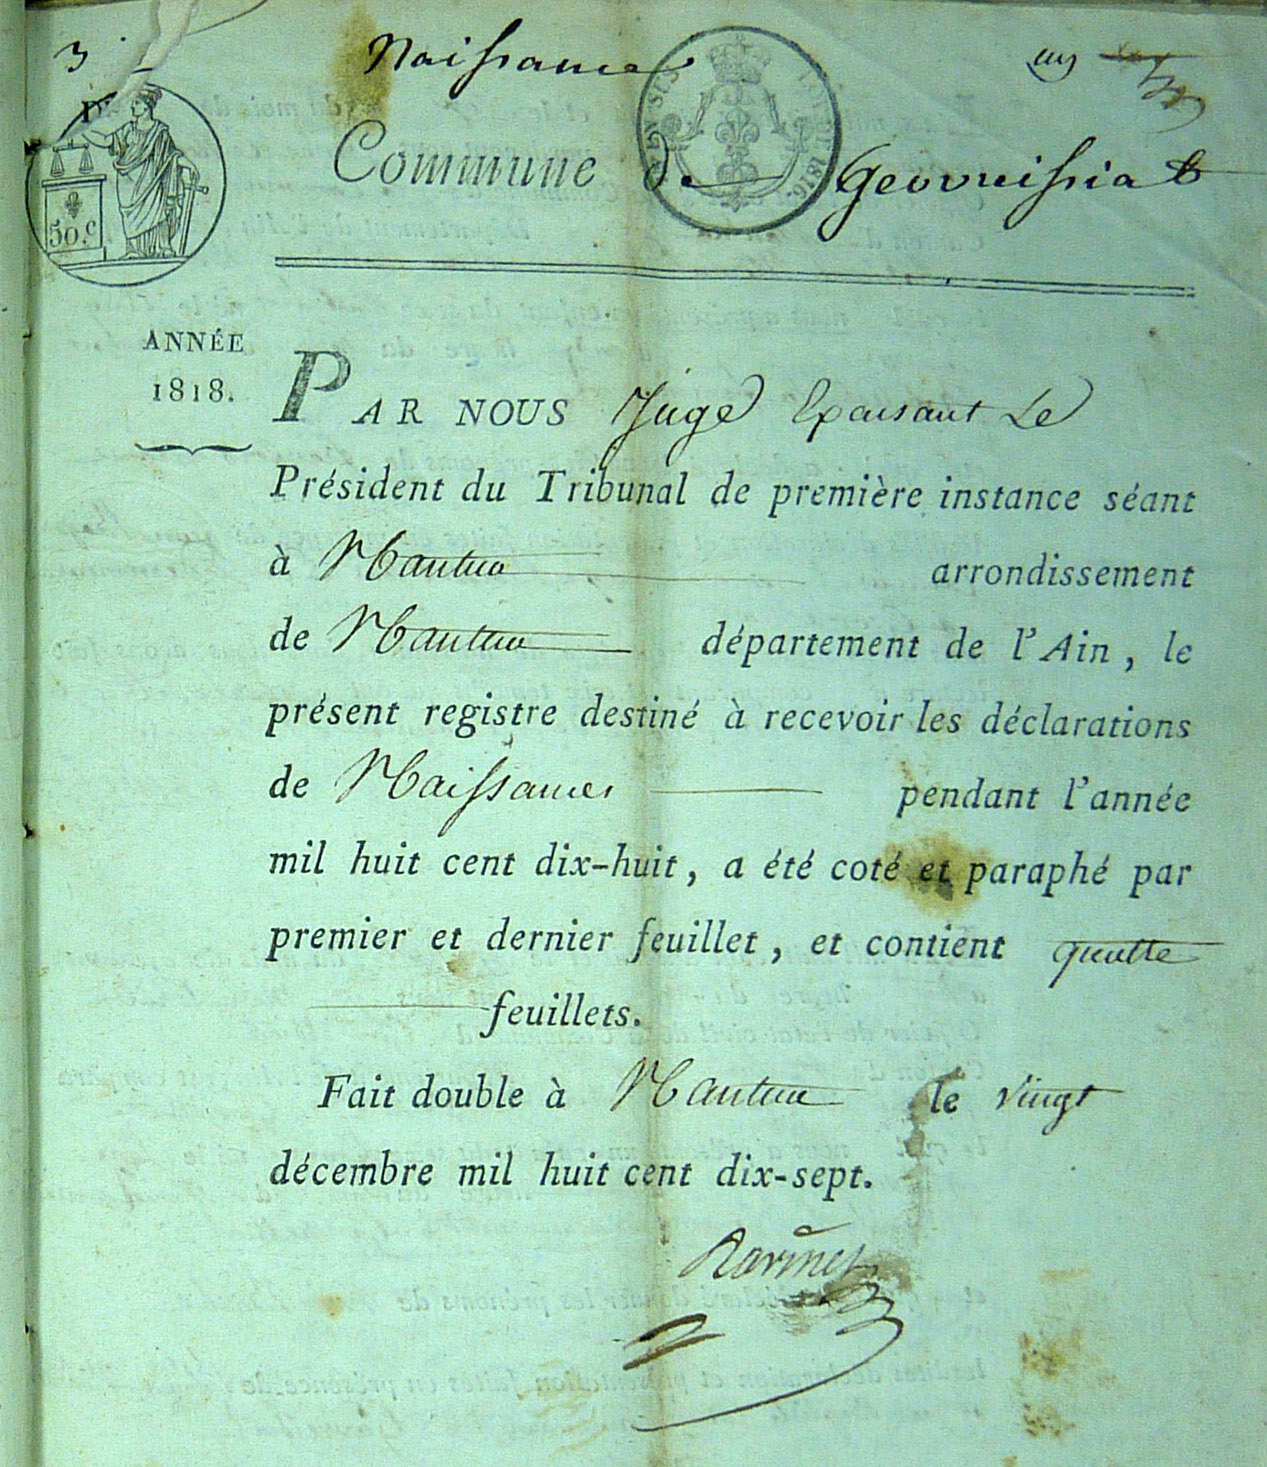 3
Naissance
un
50.c
Commune de Geovreissiat
ANNÉE
1818.
PAR NOUS Juge Epaisant Le
Président du Tribunal de première instance séant
à Nantua arrondissement
de Nantua département de l'Ain, le
présent registre destiné à recevoir les déclarations
de Naissances pendant l'année
mil huit cent dix-huit, a été coté et paraphé par
premier et dernier feuillet, et contient quatre
feuillets.
Fait double à Nantua le vingt
décembre mil huit cent dix-sept.